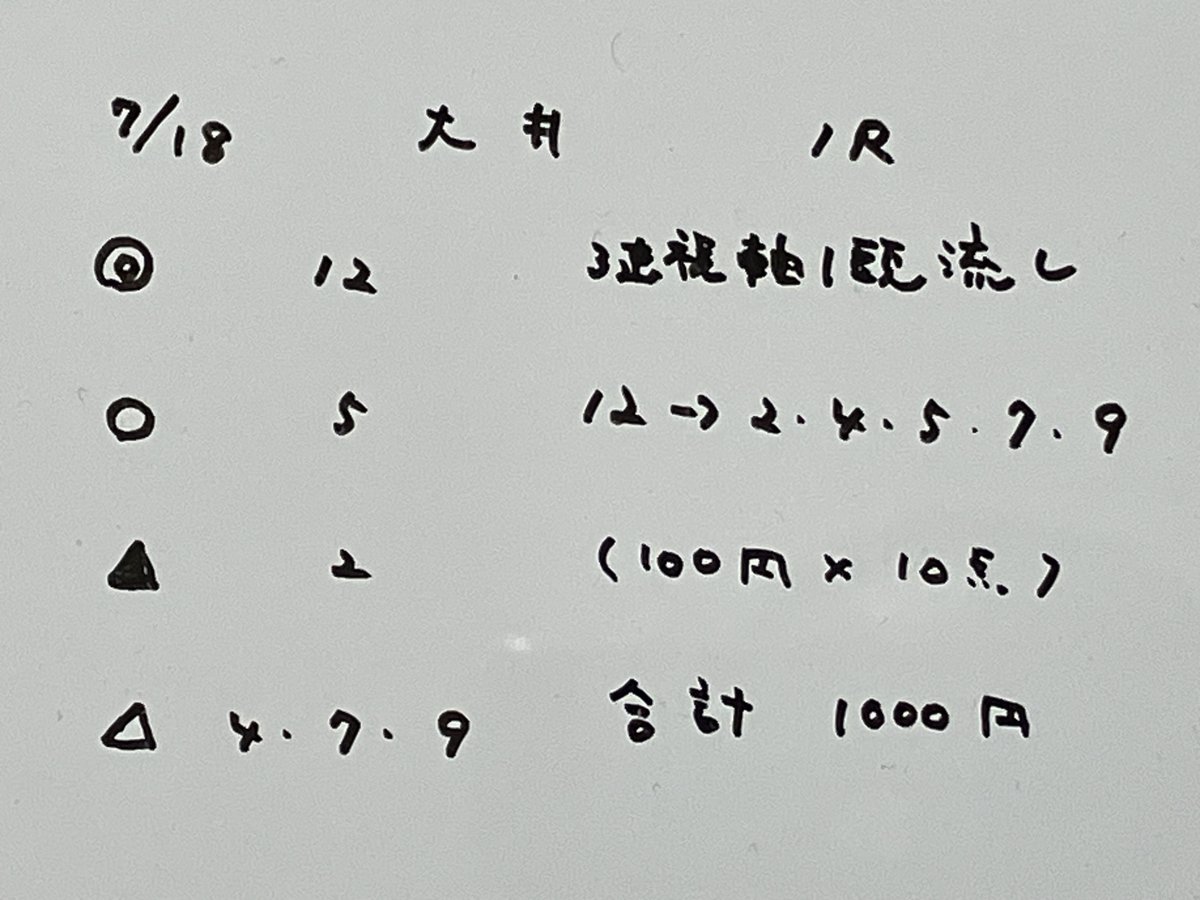 7/18 大井 1R
◎ 12 3連複軸1頭流し
○ 5 12→2.4.5.7.9
▲ 2 (100円×10点)
△ 4.7.9 合計 1000円